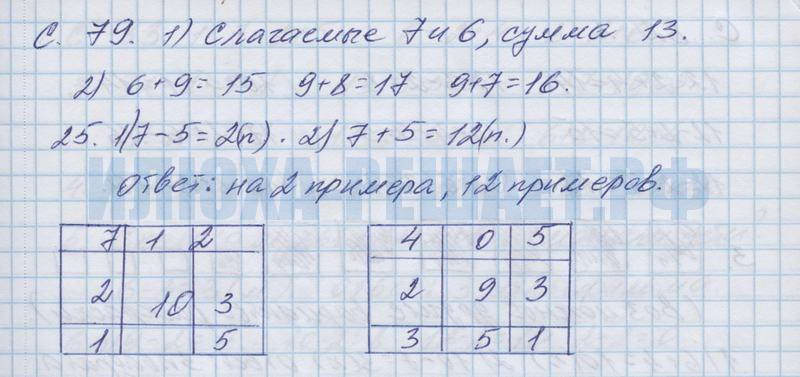 С. 79. 1) Слагаемые 7 и 6, сумма 13.
2) 6+9=15 9+8=17 9+7=16.
25. 1) 7-5=2(п). 2) 7+5=12(п.)
Ответ: на 2 примера, 12 примеров.
ИЛЮХА-РЕШАЕТ.РФ
7 1 2
2 10 3
1 5
4 0 5
2 9 3
3 5 1